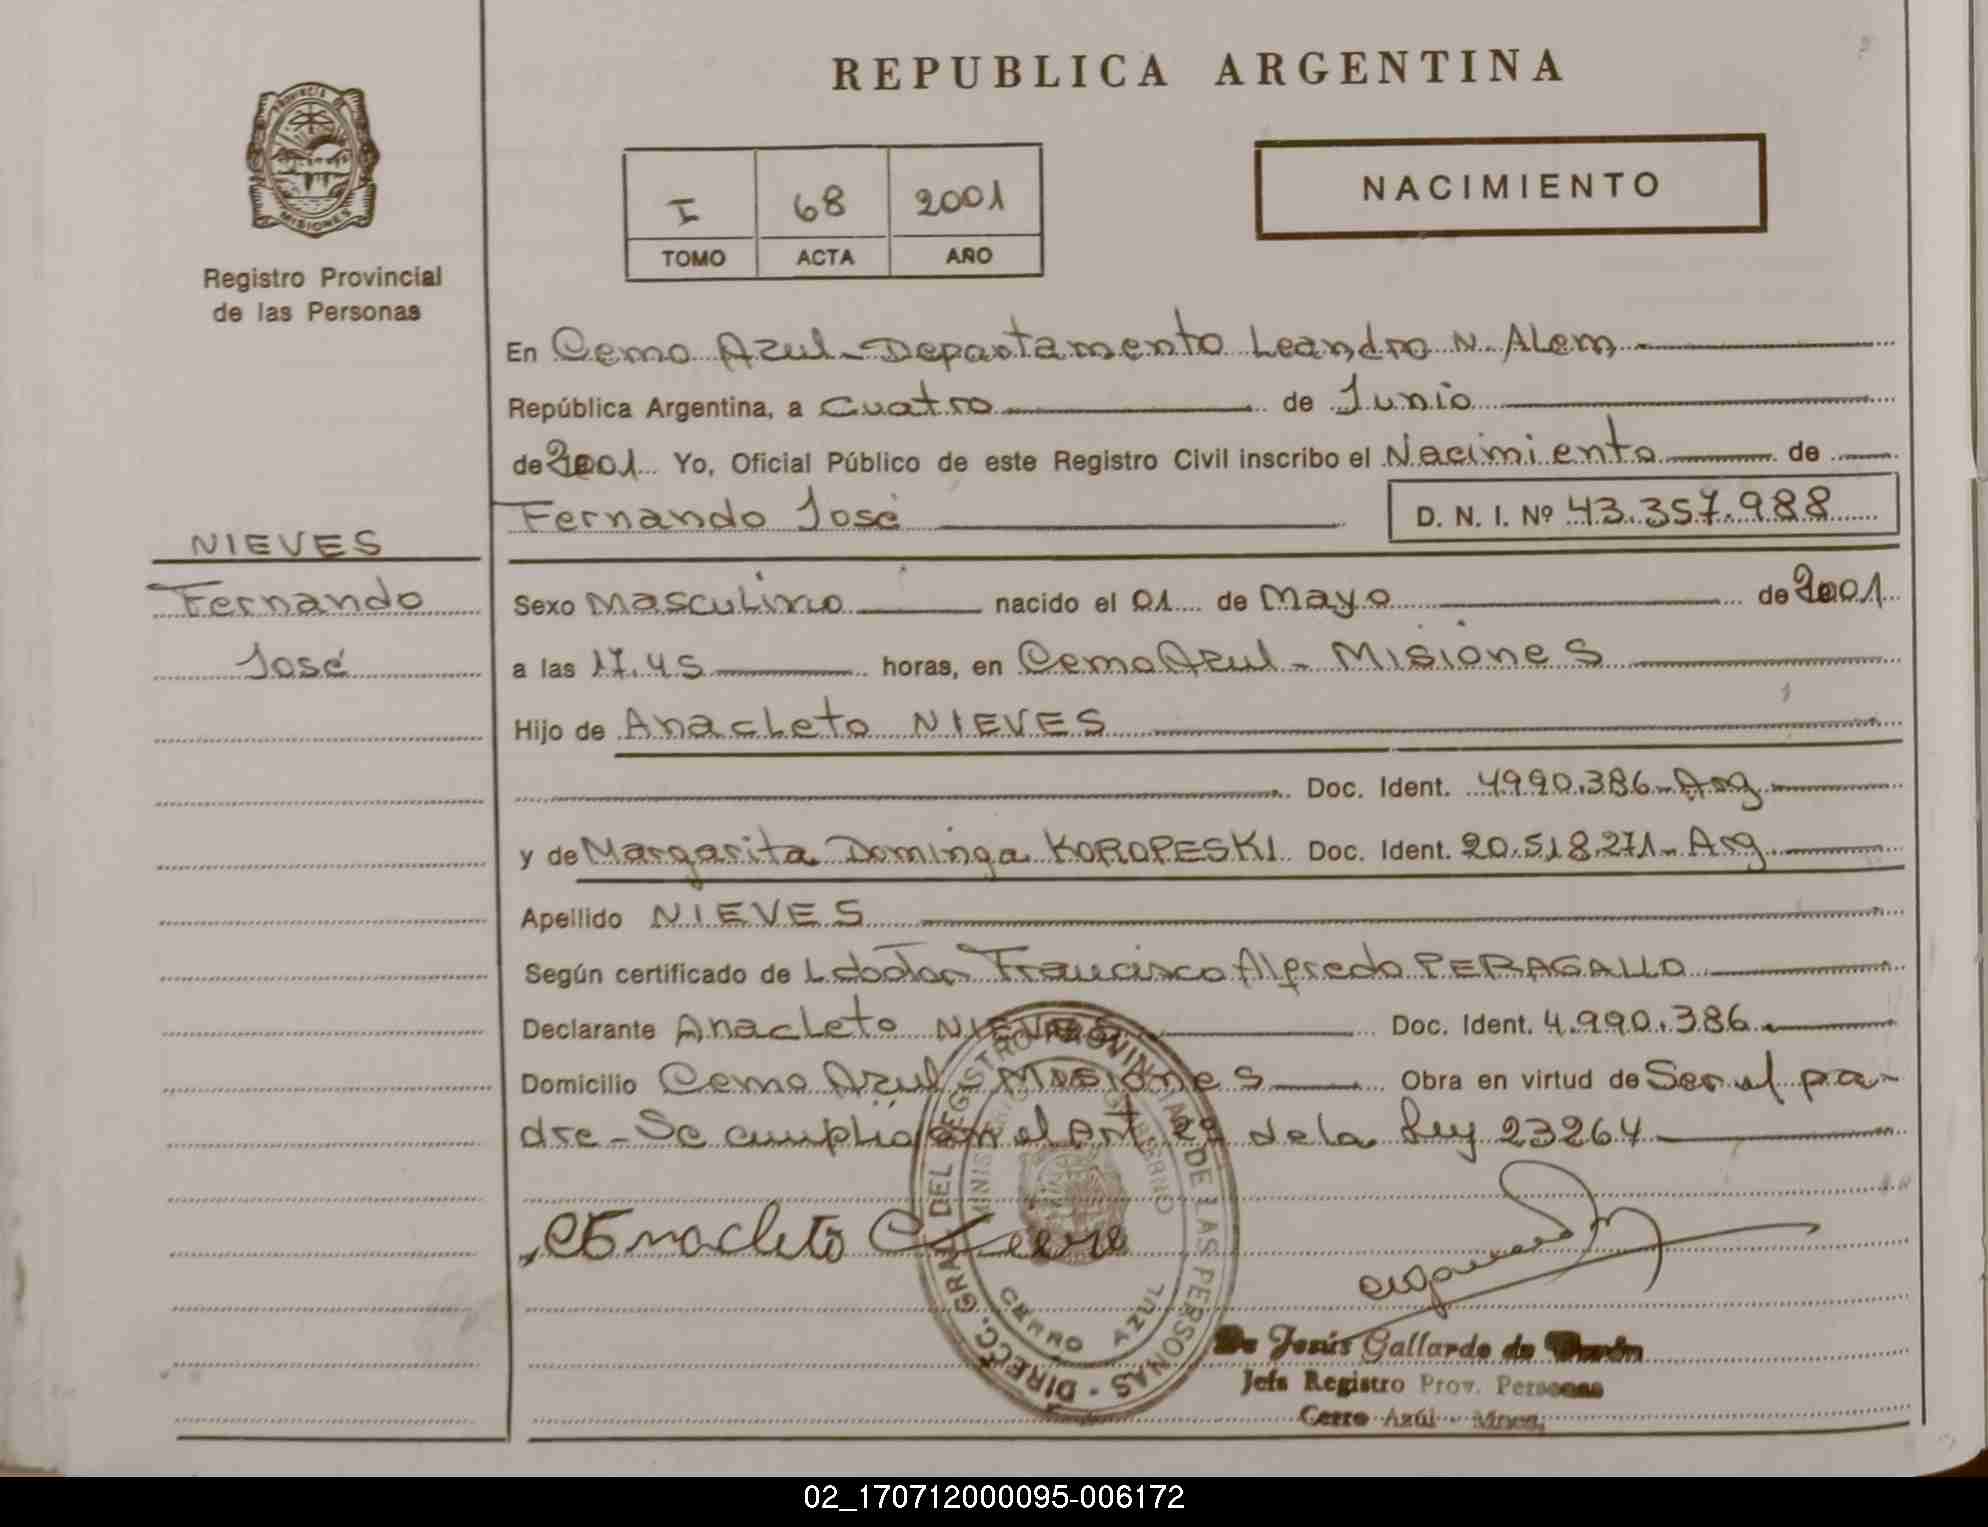 REPUBLICA ARGENTINA
PROVINCIA DE
MISIONES
Registro Provincial
de las Personas
I 68 2001
TOMO ACTA AÑO
NACIMIENTO
En Cerro Azul - Departamento Leandro N. Alem
República Argentina, a Cuatro de Junio
de 2001 Yo, Oficial Público de este Registro Civil inscribo el Nacimiento de
Fernando José D. N. I. Nº 43.357.988
NIEVES
Fernando
José
Sexo Masculino nacido el 01 de Mayo de 2001
a las 17.45 horas, en Cerro Azul - Misiones
Hijo de Anacleto NIEVES
Doc. Ident. 4990.386 - Arg
y de Margarita Dominga KOROPESKI Doc. Ident. 20.518.271 - Arg
Apellido NIEVES
Según certificado de Francisco Alfredo PERAGALLO
Declarante Anacleto NIEVES Doc. Ident. 4.990.386
Domicilio Cerro Azul - Misiones Obra en virtud de Ser el pa-
dre - Se cumplió con el Art. de la Ley 23264
Anacleto
DIRECC. GRAL. DEL REGISTRO PROVINCIAL DE LAS PERSONAS
CERRO AZUL
De Jesús Gallardo de
Jefa Registro Prov. Personas
Cerro Azúl - Mnes.
02_170712000095-006172